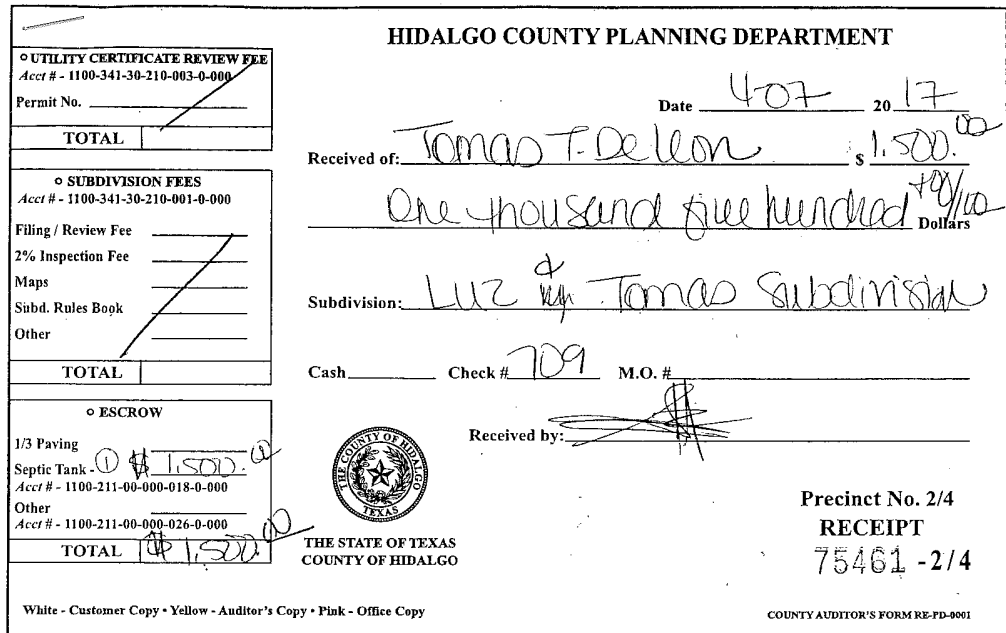 HIDALGO COUNTY PLANNING DEPARTMENT
○ UTILITY CERTIFICATE REVIEW FEE
Acct # - 1100-341-30-210-003-0-000
Permit No.
TOTAL
○ SUBDIVISION FEES
Acct # - 1100-341-30-210-001-0-000
Filing / Review Fee
2% Inspection Fee
Maps
Subd. Rules Book
Other
TOTAL
○ ESCROW
1/3 Paving
Septic Tank - ① $ 1,500.00
Acct # - 1100-211-00-000-018-0-000
Other
Acct # - 1100-211-00-000-026-0-000
TOTAL $ 1,500.00
Date 4-07 20 17
Received of: Tomas T. De Leon $ 1,500.00
One thousand five hundred +00/100 Dollars
Subdivision: Luz & Tomas Subdivision
Cash Check # 709 M.O. #
Received by:
THE COUNTY OF HIDALGO
TEXAS
THE STATE OF TEXAS
COUNTY OF HIDALGO
Precinct No. 2/4
RECEIPT
75461 -2/4
White - Customer Copy • Yellow - Auditor's Copy • Pink - Office Copy
COUNTY AUDITOR'S FORM RE-PD-0001